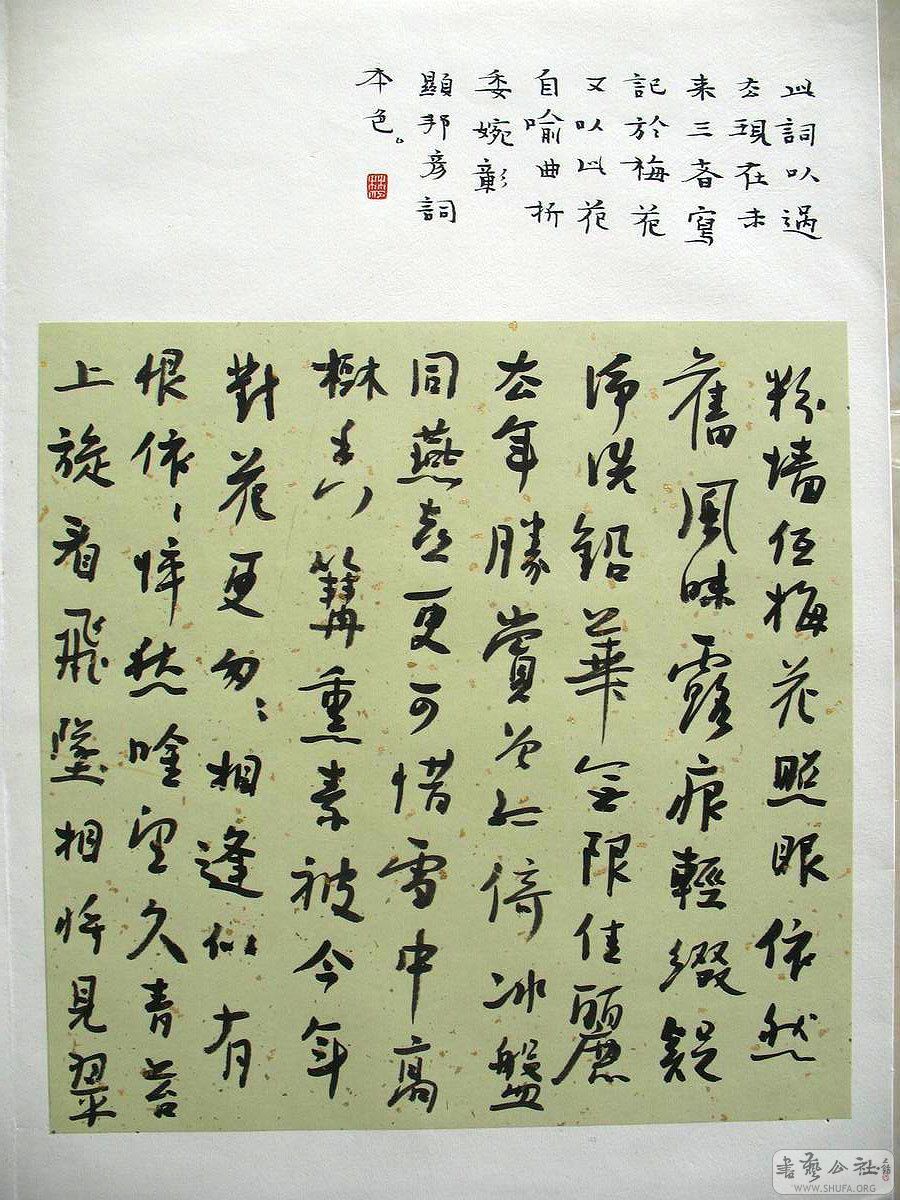 此詞以過
去現在未
来三者寫
記於梅花
又以此花
自喻曲折
委婉彰
顯邦彥詞
本色。
粉墻低梅花照眼依然
舊風味露痕輕綴疑
淨洗鉛華無限佳麗
去年勝賞曾孤倚冰盤
同燕喜更可惜雪中高
樹香篝熏素被今年
對花更匆〻相逢似有
恨依〻悴愁吟望久青苔
上旋看飛墜相將見翠
書藝公社
WWW.SHUFA.ORG